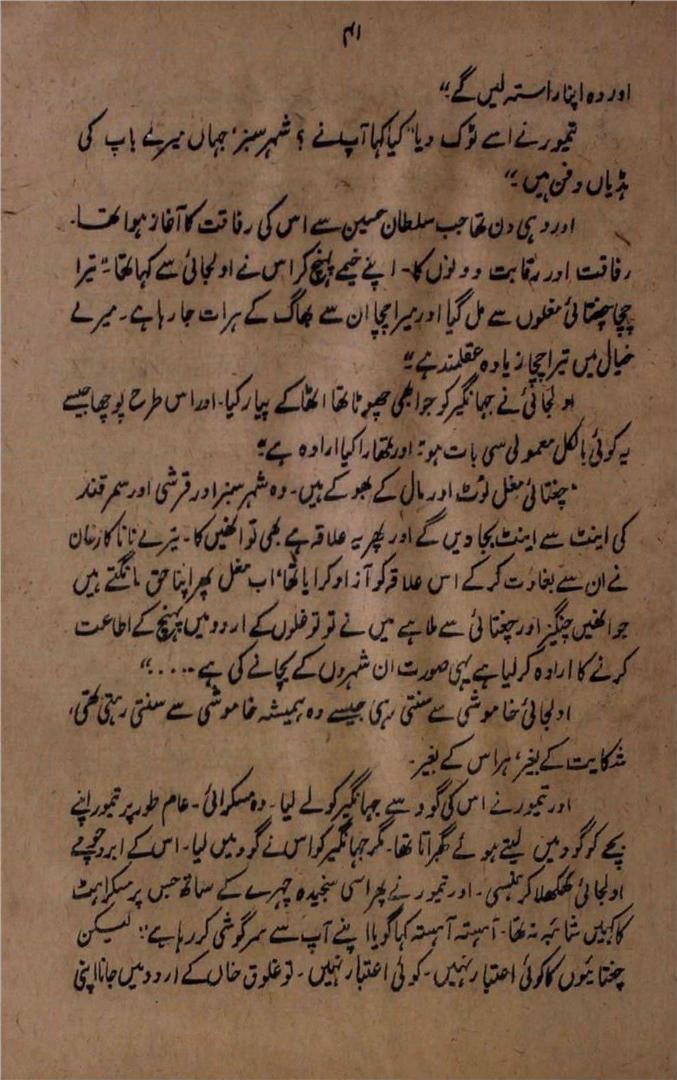 ۴۱
اور وہ اپنا راستہ لیں گے۔"
تیمور نے اسے ٹوک دیا "کیا کہا آپ نے ؟ شہر سبز، جہاں میرے باپ کی
ہڈیاں دفن ہیں۔"
اور وہی دن تھا جب سلطان حسین سے اس کی رفاقت کا آغاز ہوا تھا۔
رفاقت اور رقابت دونوں کا۔ اپنے خیمے پہنچ کر اس نے اولجائی سے کہا تھا۔ "تیرا
چچا چغتائی مغلوں سے مل گیا اور میرا چچا ان سے بھاگ کے ہرات جا رہا ہے۔ میرے
خیال میں تیرا چچا زیادہ عقلمند ہے۔"
اولجائی نے جہانگیر کو جو ابھی چھوٹا تھا اٹھا کے پیار کیا۔ اور اس طرح پوچھا جیسے
یہ کوئی بالکل معمولی سی بات ہو " اور تمھارا کیا ارادہ ہے"
"چغتائی مغل لوٹ اور مال کے بھوکے ہیں۔ وہ شہر سبز اور قرشی اور سمرقند
کی اینٹ سے اینٹ بجا دیں گے اور پھر یہ علاقہ ہے بھی تو انھیں کا۔ تیرے نانا کازغان
نے ان سے بغاوت کر کے اس علاقہ کو آزاد کرایا تھا، اب مغل پھر اپنا حق مانگتے ہیں
جو انھیں چنگیز اور چغتائی سے ملا ہے میں نے تو توغلوں کے اردو میں پہنچ کے اطاعت
کرنے کا ارادہ کر لیا ہے یہی صورت ان شہروں کے بچانے کی ہے ....."
اولجائی خاموشی سے سنتی رہی جیسے وہ ہمیشہ خاموشی سے سنتی رہتی تھی،
شکایت کے بغیر، ہراس کے بغیر۔
اور تیمور نے اس کی گود سے جہانگیر کو لے لیا۔ وہ مسکرائی۔ عام طور پر تیمور اپنے
بچے کو گود میں لیتے ہوئے گھبراتا تھا۔ مگر جہانگیر کو اس نے گود میں لیا۔ اس کے ابرو چومے
اولجائی کھلکھلا کر ہنسی۔ اور تیمور نے پھر اسی سنجیدہ چہرے کے ساتھ جس پر مسکراہٹ
کا کہیں شائبہ نہ تھا۔ آہستہ آہستہ کہا گویا اپنے آپ سے سرگوشی کر رہا ہے: "لیکن
چغتائیوں کا کوئی اعتبار نہیں۔ کوئی اعتبار نہیں۔ توغلوق خاں کے اردو میں جانا اپنی